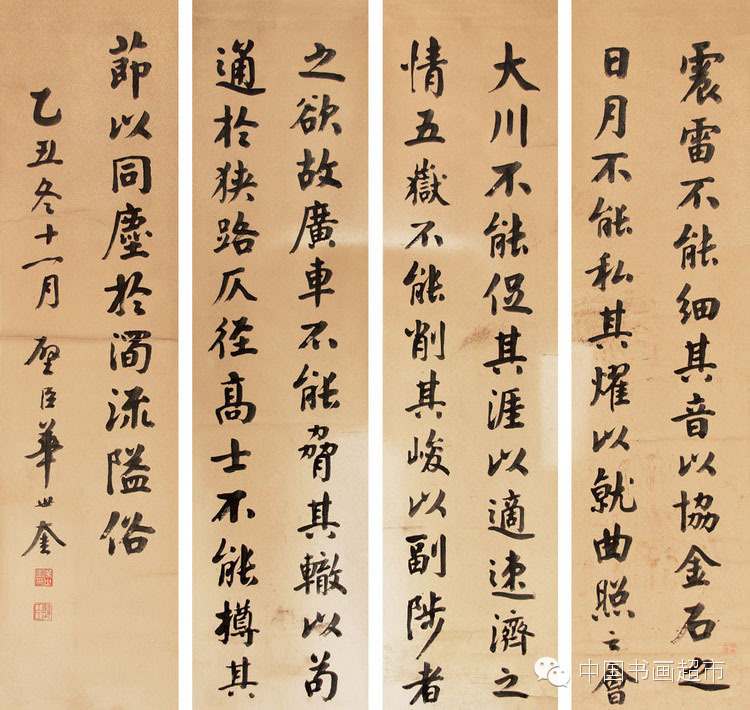 震雷不能細其音以協金石之
日月不能私其耀以就曲照之會
大川不能促其涯以適速濟之
情五嶽不能削其峻以副陟者
之欲故廣車不能脅其轍以苟
通於狹路仄徑高士不能樽其
節以同塵於濁流隘俗
乙丑冬十一月 璧臣華世奎
中国书画超市